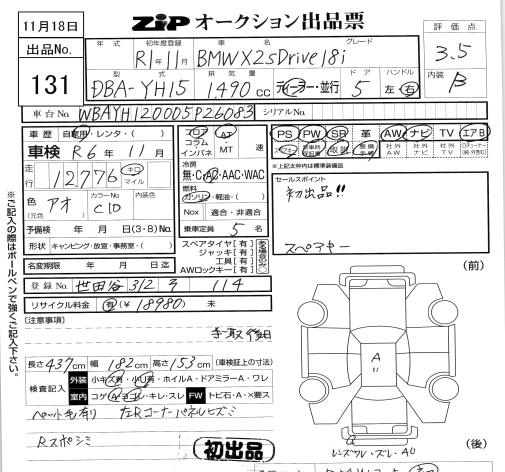 11月18日
ZIP オークション出品票
評価点
3.5
内装
B
出品No.
131
年式 初年度登録 車名 グレード
R1年11月 BMWX2sDrive18i
型式 排気量 ドア ハンドル
DBA-YH15 1490cc ディーラー・並行 5 左・右
車台No. WBAYH120005P26083 シリアルNo.
車歴 自家用・レンタ・( )
車検 R6年11月
走行 12,776 キロ マイル
色(元色) アオ カラーNo. C1D 内装色
予備検 年 月 日(3・8)No.
形状 キャンピング・放宣・事務室・( )
名変期限 年 月 日迄
フロア コラム インパネ AT・MT 速
冷房
無・C・AC・AAC・WAC
燃料
ガソリン・軽油・( )
Nox 適合・非適合
乗車定員 5名
スペアタイヤ[有]
ジャッキ[有]
工具[有]
AWロックキー[有]
PS PW SR 革 AW ナビ TV エアB
スペアキー 新車時保証書 取説 整備手帳 社外AW 社外ナビ 社外TV
*上記太わく内は標準装備品
セールスポイント
初出品!!
スペアキー
登録No. 世田谷 312 ヲ 114
リサイクル料金 有(¥18980) 未
[注意事項]
車取後日
長さ437cm 幅182cm 高さ153cm (車検証上の寸法)
検査記入 外装 小キズ有・小U有・ホイルA・ドアミラーA・ワレ
室内 コゲA・ヨゴレ・キレ・スレ FW トビ石・A・×要ス
ペット毛有り 左Rコーナーパネルヒズミ
Rスポシミ
初出品
(前)
A
U
a
(後)
※ご記入の際はボールペンで強くご記入下さい。